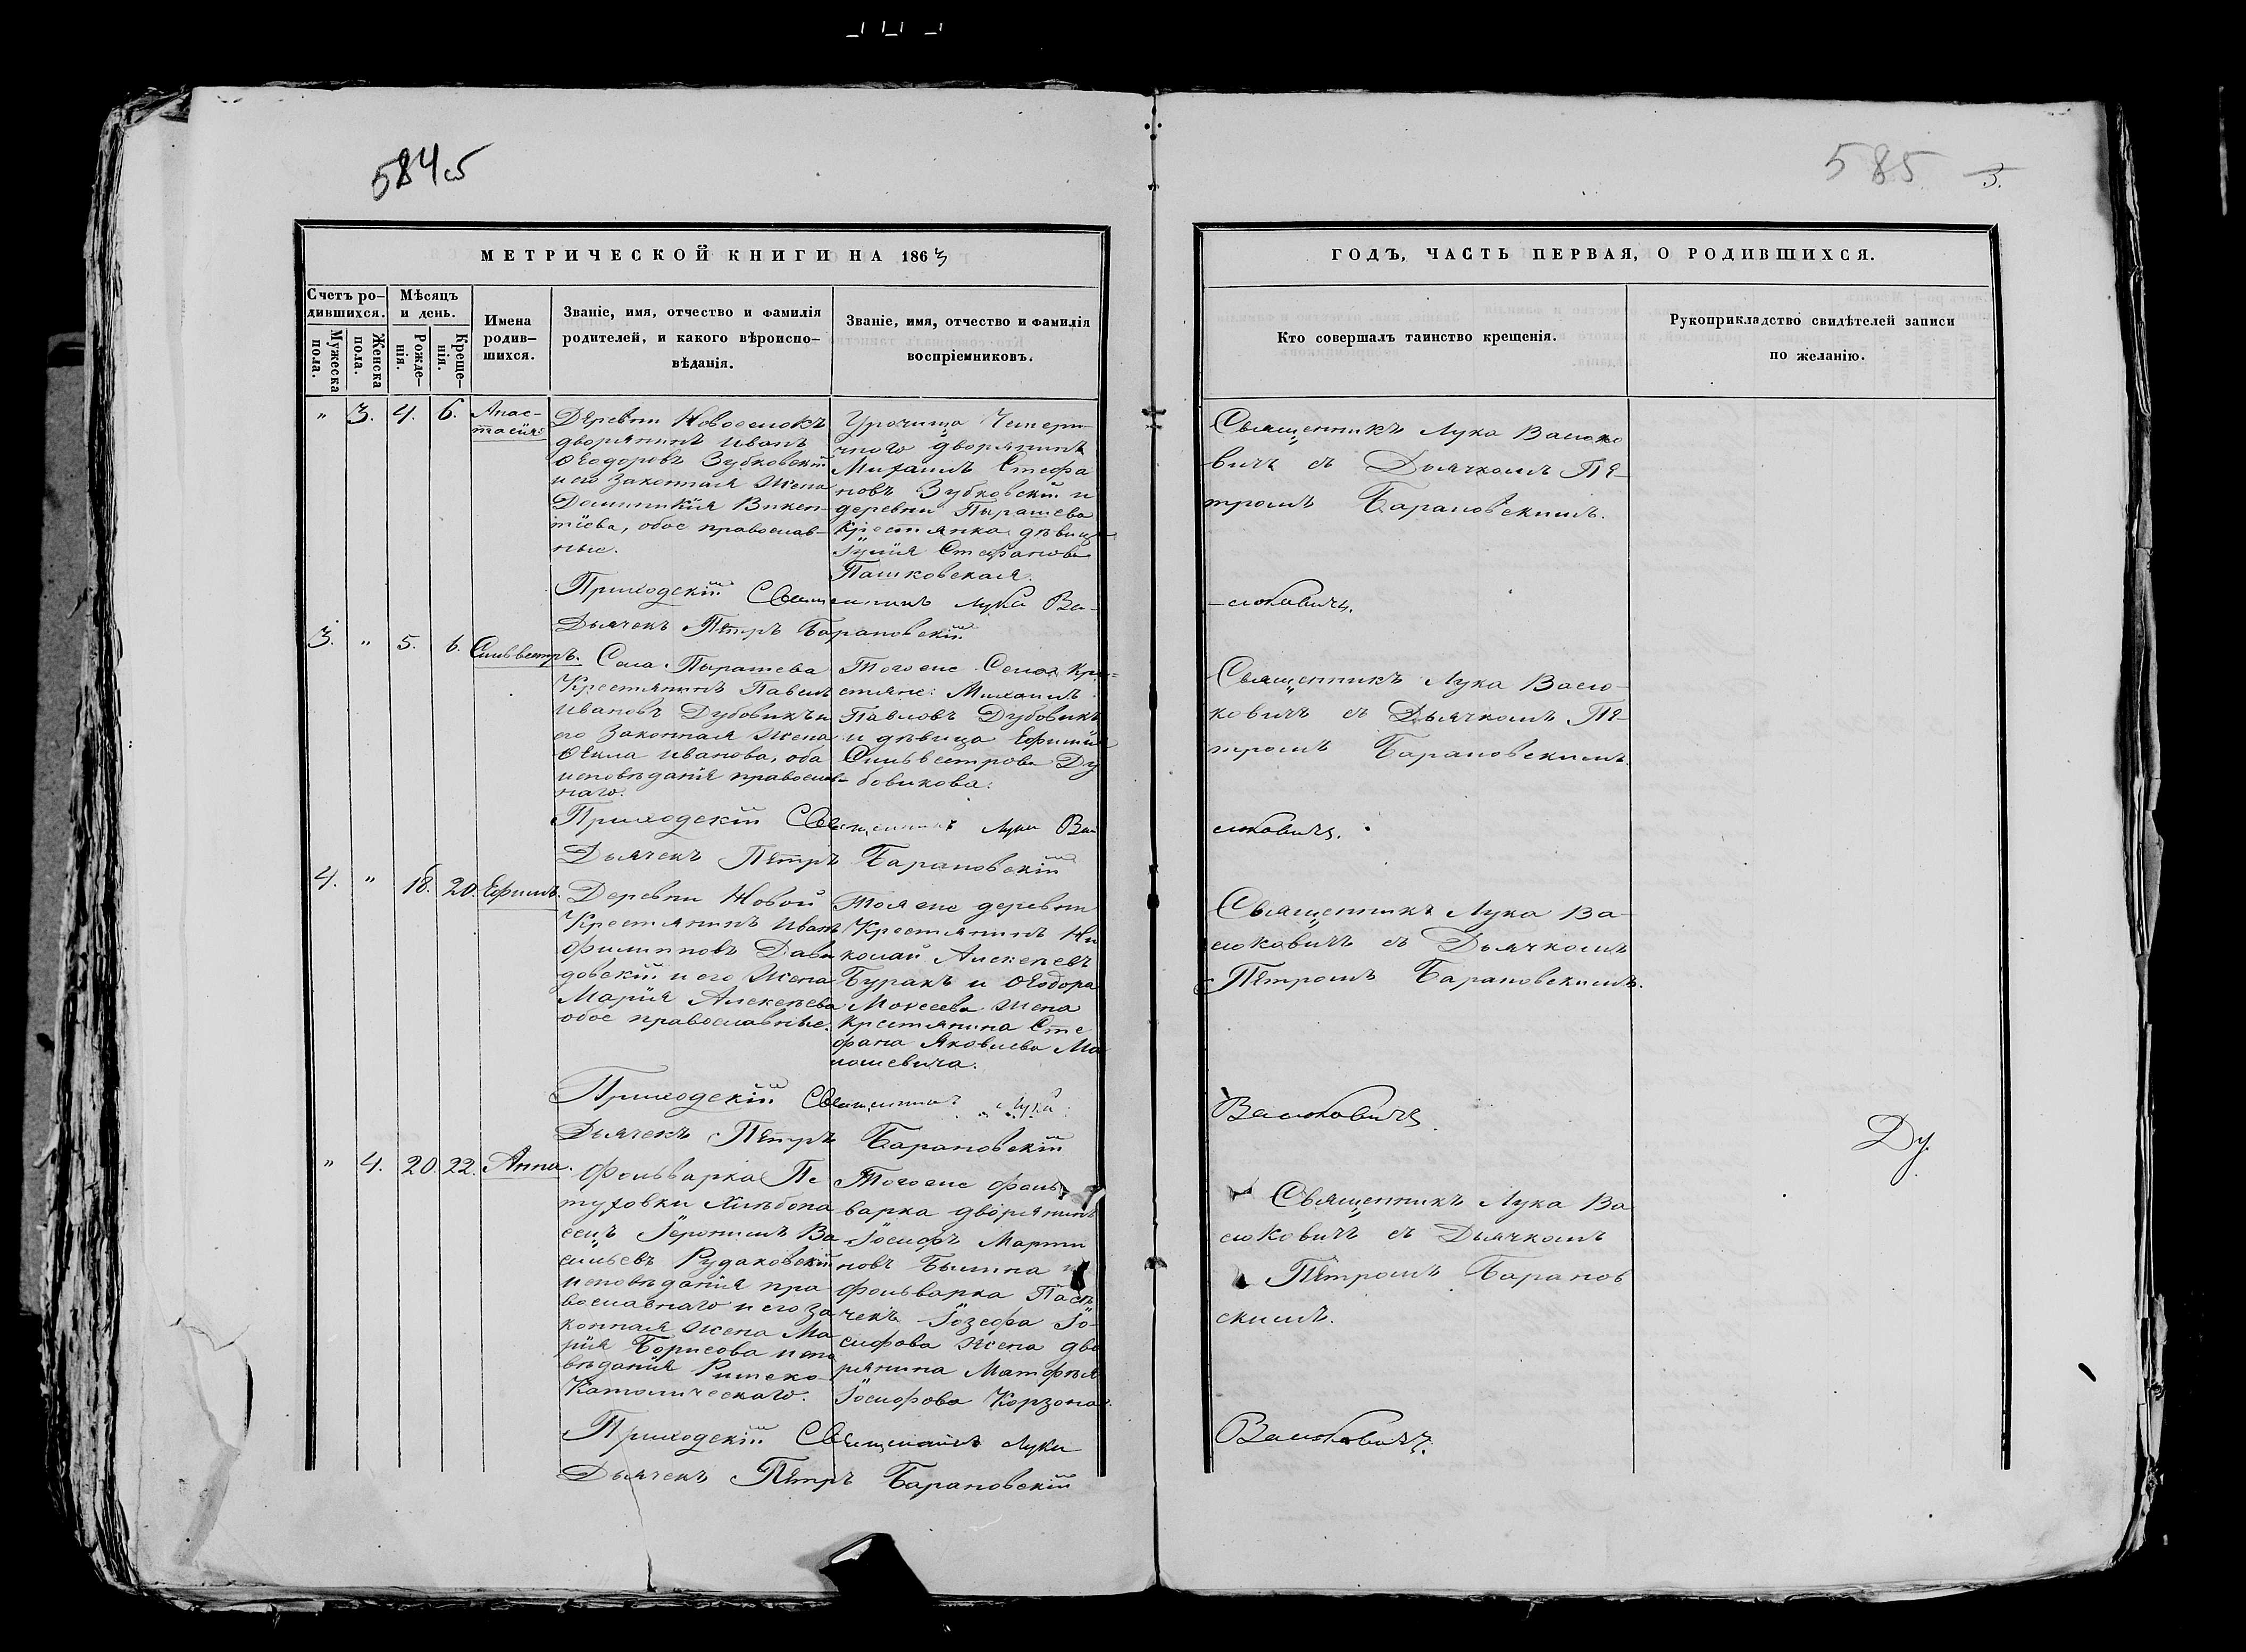 584об
585 3.
МЕТРИЧЕСКОЙ КНИГИ НА 1863
ГОДЪ, ЧАСТЬ ПЕРВАЯ, О РОДИВШИХСЯ.
Счетъ ро-
дившихся.
Мужеска
пола.
Женска
пола.
Мѣсяцъ
и день.
Рожде-
нія.
Креще-
нія.
Имена
родив-
шихся.
Званіе, имя, отчество и фамилія
родителей, и какого вѣроиспо-
вѣданія.
Званіе, имя, отчество и фамилія
воспріемниковъ.
Кто совершалъ таинство крещенія.
Рукоприкладство свидѣтелей записи
по желанію.
" 3. 4. 6. Анас-
тасія
Деревни Новоселокъ
дворянинъ Иванъ
Ѳеодоровъ Зубковскій
и его законная жена
Доминикія Викен-
тіева, обое православ-
ные.
Урочища
дворянинъ
Михаилъ Стефа
новъ Зубковскій и
деревни Пырашева
крестьянка дѣвица
Юлія Стефанова
Пашковская.
Священникъ Лука Васюко
вичъ съ Дьячкомъ Пе-
тромъ Барановскимъ.
Приходскій Священникъ Лука Ва-
-сюковичъ.
Дьячекъ Петръ Барановскій
3. " 5. 6. Сильвестръ.
Села Пырашева
Крестянинъ Павелъ
Ивановъ Дубовикъ и
его законная жена
Ѳекла Иванова, оба
исповѣданія православ-
наго.
Тогоже Села Кре-
стяне: Михаилъ
Павловъ Дубовикъ
и дѣвица Ефимія
Сильвестрова Ду
бовикова.
Священникъ Лука Васю-
ковичъ съ Дьячкомъ Пе-
тромъ Барановскимъ.
Приходскій Священникъ Лука Ва
сюковичъ.
Дьячекъ Петръ Барановскій
4. " 18. 20. Ефимъ.
Деревни Новой
Крестянинъ Иванъ
Филипповъ Дави
довскій и его жена
Марія Алексѣева
обое православные.
Тояже деревни
Крестянинъ Ни
колай Алексѣевъ
Буракъ и Ѳеодора
Моисеева жена
крестянина Сте
фана Яковлева Ма
лашевича.
Священникъ Лука Ва
сюковичъ съ Дьячкомъ
Петромъ Барановскимъ.
Приходскій Священникъ Лука
Васюковичъ.
Дьячекъ Петръ Барановскій
Ду.
" 4. 20. 22. Анна.
Фольварка Пе
туховки хлѣбопа
сецъ Іеронимъ Ва
сильевъ Рудаковскій
исповѣданія пра
вославнаго и его за
конная жена Ма
рія Борисова испо
вѣданія Римско-
Католическаго.
Тогоже фоль
варка дворянинъ
Іосифъ Марти
новъ Былина и
фольварка Пасѣ
чекъ Іозефа Іо-
сифова жена дво
рянина Матфѣя
Іосифова Корзона.
Священникъ Лука Ва
сюковичъ съ Дьячкомъ
Петромъ Баранов
скимъ.
Приходскій Священникъ Лука
Васюковичъ.
Дьячекъ Петръ Барановскій